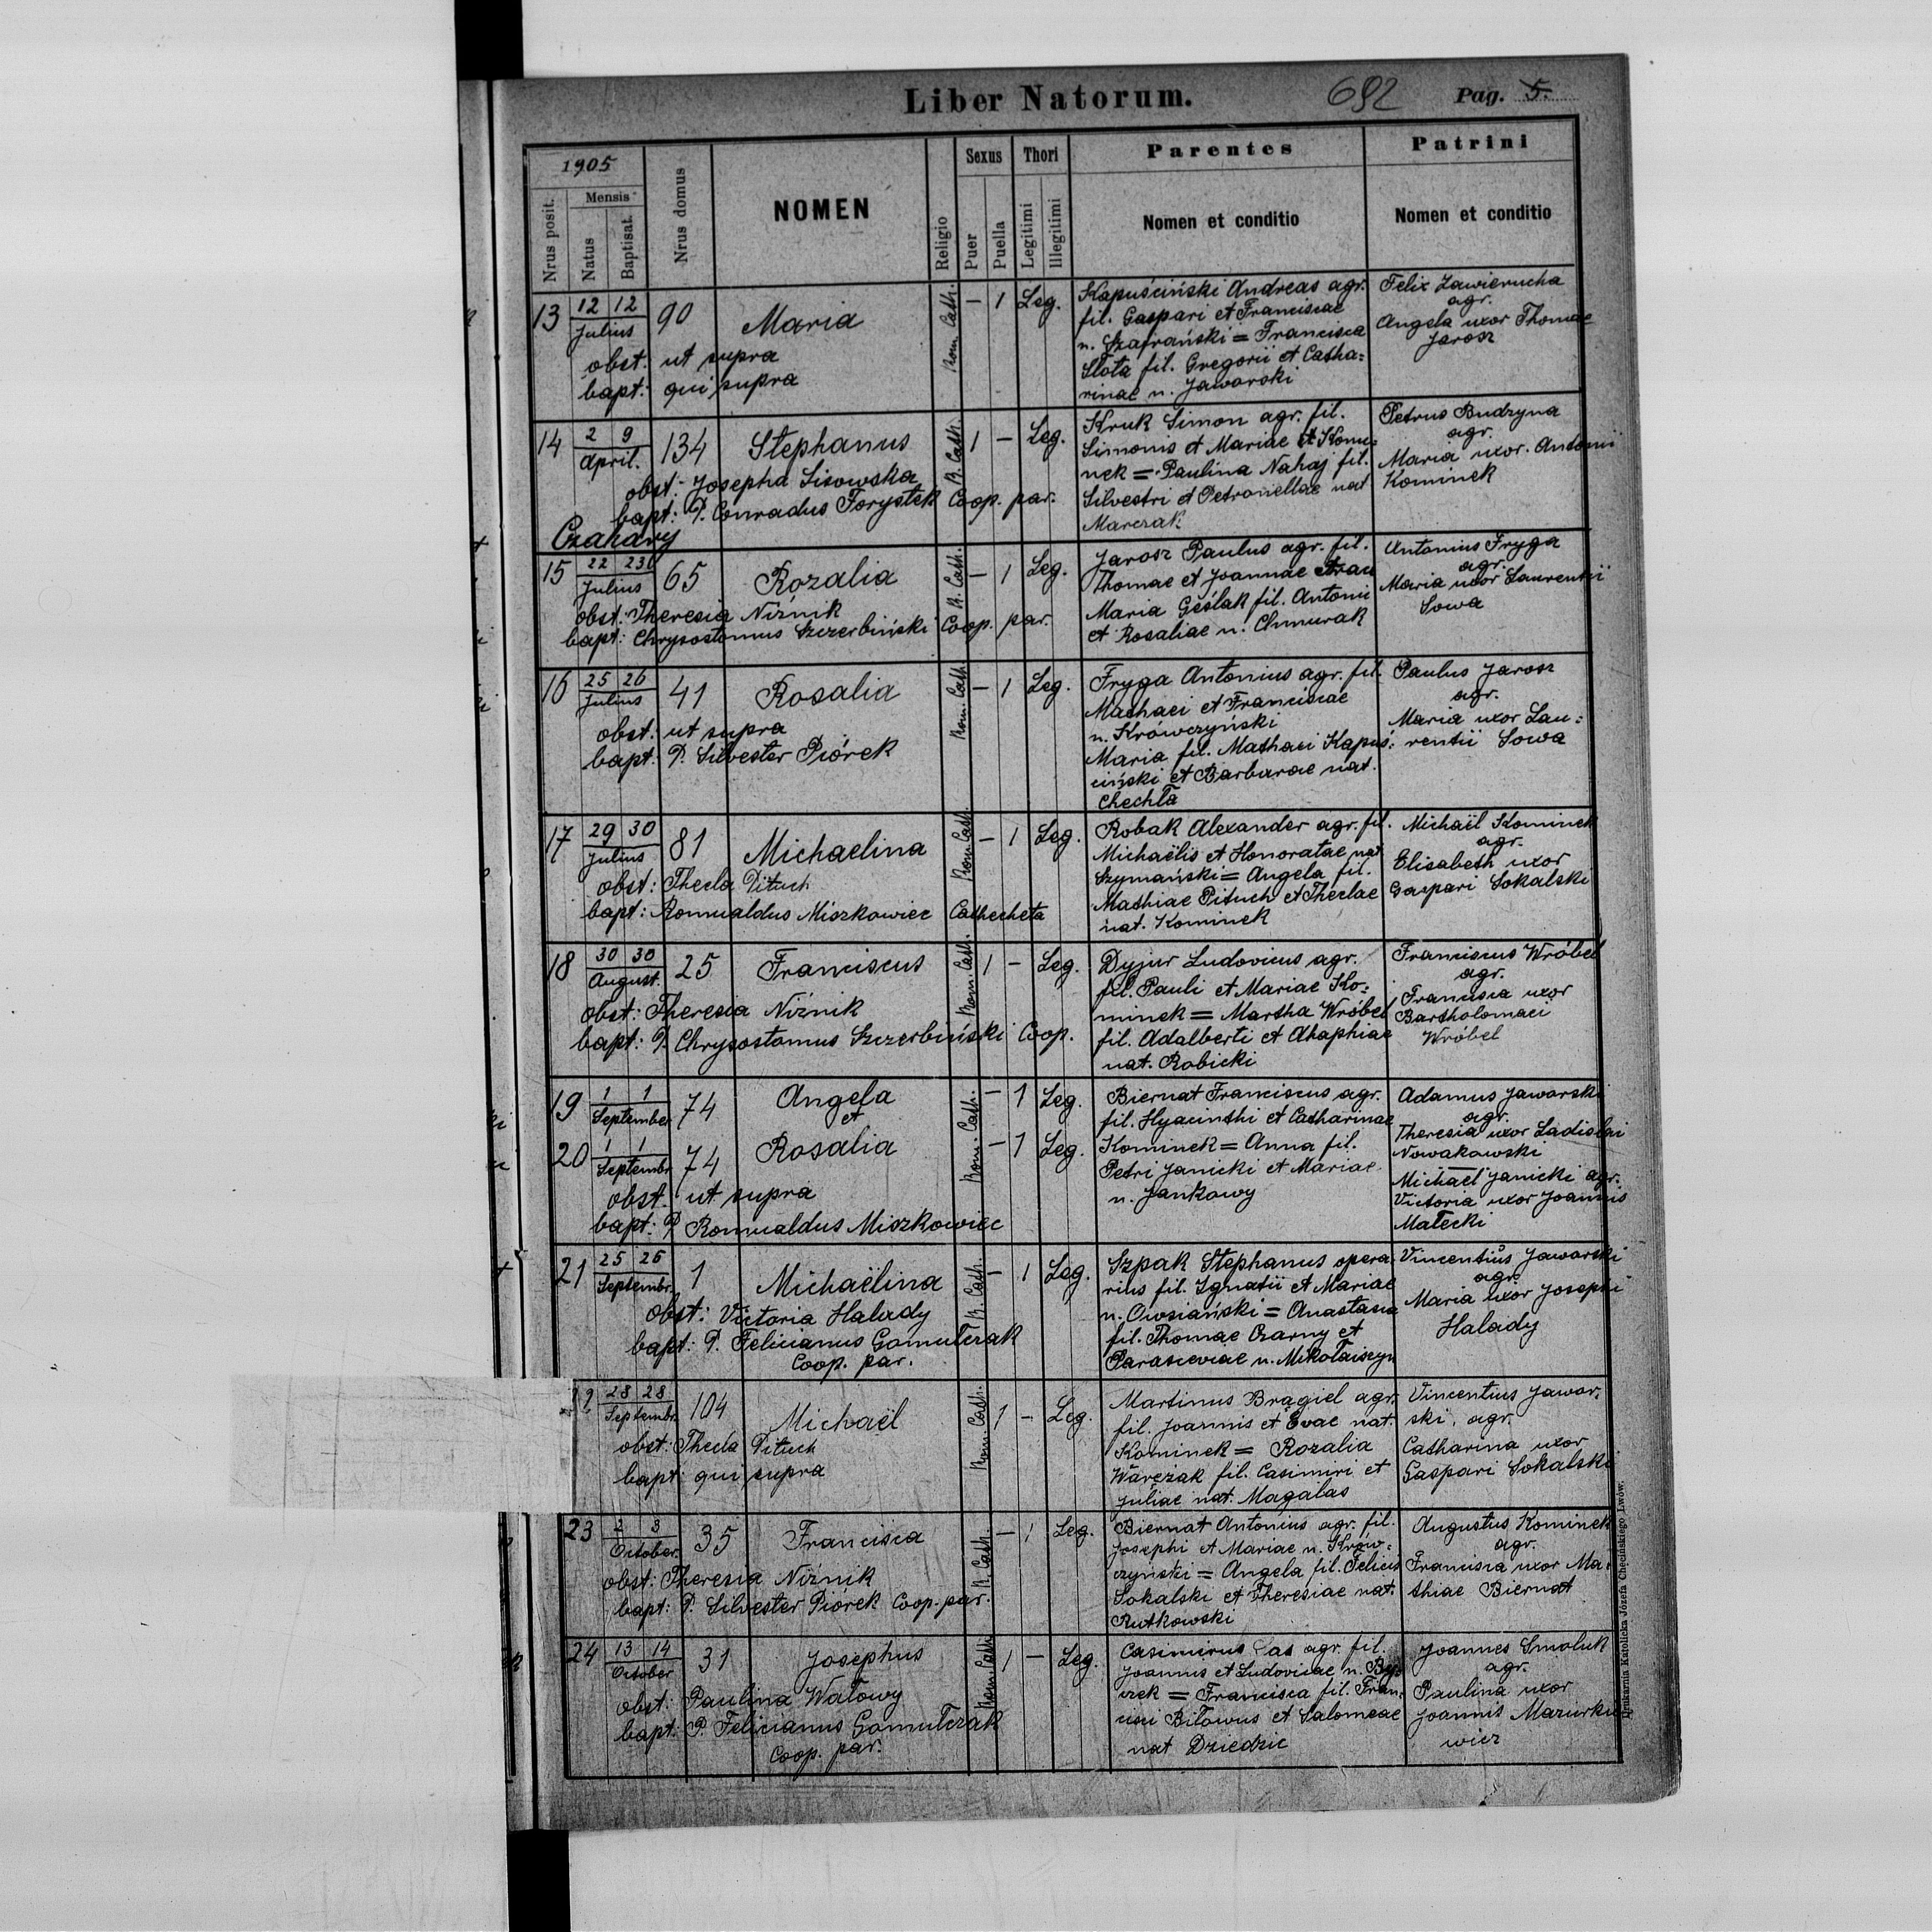 Liber Natorum.
692
Pag. 5.
1905
Nrus posit.
Mensis
Natus
Baptisat.
Nrus domus
NOMEN
Religio
Sexus
Puer
Puella
Thori
Legitimi
Illegitimi
Parentes
Nomen et conditio
Patrini
Nomen et conditio
13 12 12 Julius 90 Maria Rom. Cath. – 1 Leg.
obst. ut supra
bapt: qui supra
Kapuściński Andreas agr.
fil. Gaspari et Franciscae
n. Szafrański = Francisca
Słota fil. Gregorii et Catha=
rinae n. Jaworski
Felix Zawierucha
agr.
Angela uxor Thomae
Jarosz
14 2 9 April. 134 Stephanus R. Cath. 1 – Leg.
obst: Josepha Lisowska
bapt: P. Conradus Forystek Coop. par.
Kruk Simon agr. fil.
Simonis et Mariae et Komi=
nek = Paulina Nahaj fil.
Silvestri et Petronellae nat
Marczak
Petrus Budzyna
agr.
Maria uxor. Antonii
Kominek
Czahary
15 22 23 Julius 65 Rozalia R. Cath. – 1 Leg.
obst: Theresia Niźnik
bapt: Chrysostomus Szczerbiński Coop. par.
Jarosz Paulus agr. fil.
Thomae et Joannae
Maria Geślak fil. Antonii
et Rosaliae n. Chmurak
Antonius Fryga
agr.
Maria uxor Laurentii
Sowa
16 25 26 Julius 41 Rosalia Rom. Cath. – 1 Leg.
obst: ut supra
bapt. P. Silvester Piórek
Fryga Antonius agr. fil.
Mathaei et Franciscae
n. Krowczyński
Maria fil. Mathaei Kapuś=
ciński et Barbarae nat.
Chechła
Paulus Jarosz
agr.
Maria uxor Lau=
rentii Sowa
17 29 30 Julius 81 Michaelina Rom. Cath. – 1 Leg.
obst: Thecla Pituch
bapt: Romualdus Miszkowiec Cathecheta
Robak Alexander agr. fil.
Michaëlis et Honoratae nat
Szymański = Angela fil.
Mathiae Pituch et Theclae
nat. Kominek
Michaël Kominek
agr.
Elisabeth uxor
Gaspari Sokalski
18 30 30 August. 25 Franciscus Rom. Cath. 1 – Leg.
obst: Theresia Niźnik
bapt: P. Chrysostomus Szczerbiński Coop.
Dyjur Ludovicus agr.
fil. Pauli et Mariae Ko=
minek = Martha Wróbel
fil. Adalberti et Ahaphiae
nat. Robicki
Franciscus Wróbel
agr.
Francisca uxor
Bartholomaei
Wróbel
19 1 1 September 74 Angela Rom. Cath. – 1 Leg.
et
20 1 1 Septembr. 74 Rosalia – 1 Leg.
obst. ut supra
bapt: P Romualdus Miszkowiec
Biernat Franciscus agr.
fil. Hyacinthi et Catharinae
Kominek = Anna fil.
Petri Janicki et Mariae
n. Jankowy
Adamus Jaworski
agr.
Theresia uxor Ladislai
Nowakowski
Michaël Janicki agr.
Victoria uxor Joannis
Małecki
21 25 26 Septembr. 1 Michaëlina R. Cath. – 1 Leg.
obst: Victoria Halady
bapt: P. Felicianus Gomułczak
Coop. par.
Szpak Stephanus opera=
rius fil. Ignatii et Mariae
n. Owsiański = Anastasia
fil. Thomae Czarny et
Parasceviae n. Mikołaiszyn
Vincentius Jaworski
agr.
Maria uxor Josephi
Halady
22 28 28 Septembr. 104 Michaël Rom. Cath. 1 – Leg.
obst: Thecla Pituch
bapt: qui supra
Martinus Brągiel agr.
fil. Joannis et Evae nat.
Kominek = Rozalia
Warczak fil. Casimiri et
Juliae nat. Magalas
Vincentius Jawor=
ski, agr.
Catharina uxor
Gaspari Sokalski
23 2 3 October. 35 Francisca R. Cath. – 1 Leg.
obst: Theresia Niźnik
bapt: P. Silvester Piórek Coop. par.
Biernat Antonius agr. fil.
Josephi et Mariae n. Krow=
czyński = Angela fil. Felicis
Sokalski et Theresiae nat.
Rutkowski
Augustus Kominek
agr.
Francisca uxor Ma=
thiae Biernat
24 13 14 October 31 Josephus Rom. Cath. 1 – Leg.
obst: Paulina Watowy
bapt: P. Felicianus Gomułczak
Coop. par.
Casimirus agr. fil.
Joannis et Ludovicae n.
= Francisca fil. Fran=
cisci Biłowus et Salomeae
nat Dziedzic
Joannes Smoluk
agr.
Paulina uxor
Joannis Mazurkie
wicz
Drukarnia Katolicka Józefa Chęcińskiego Lwów.